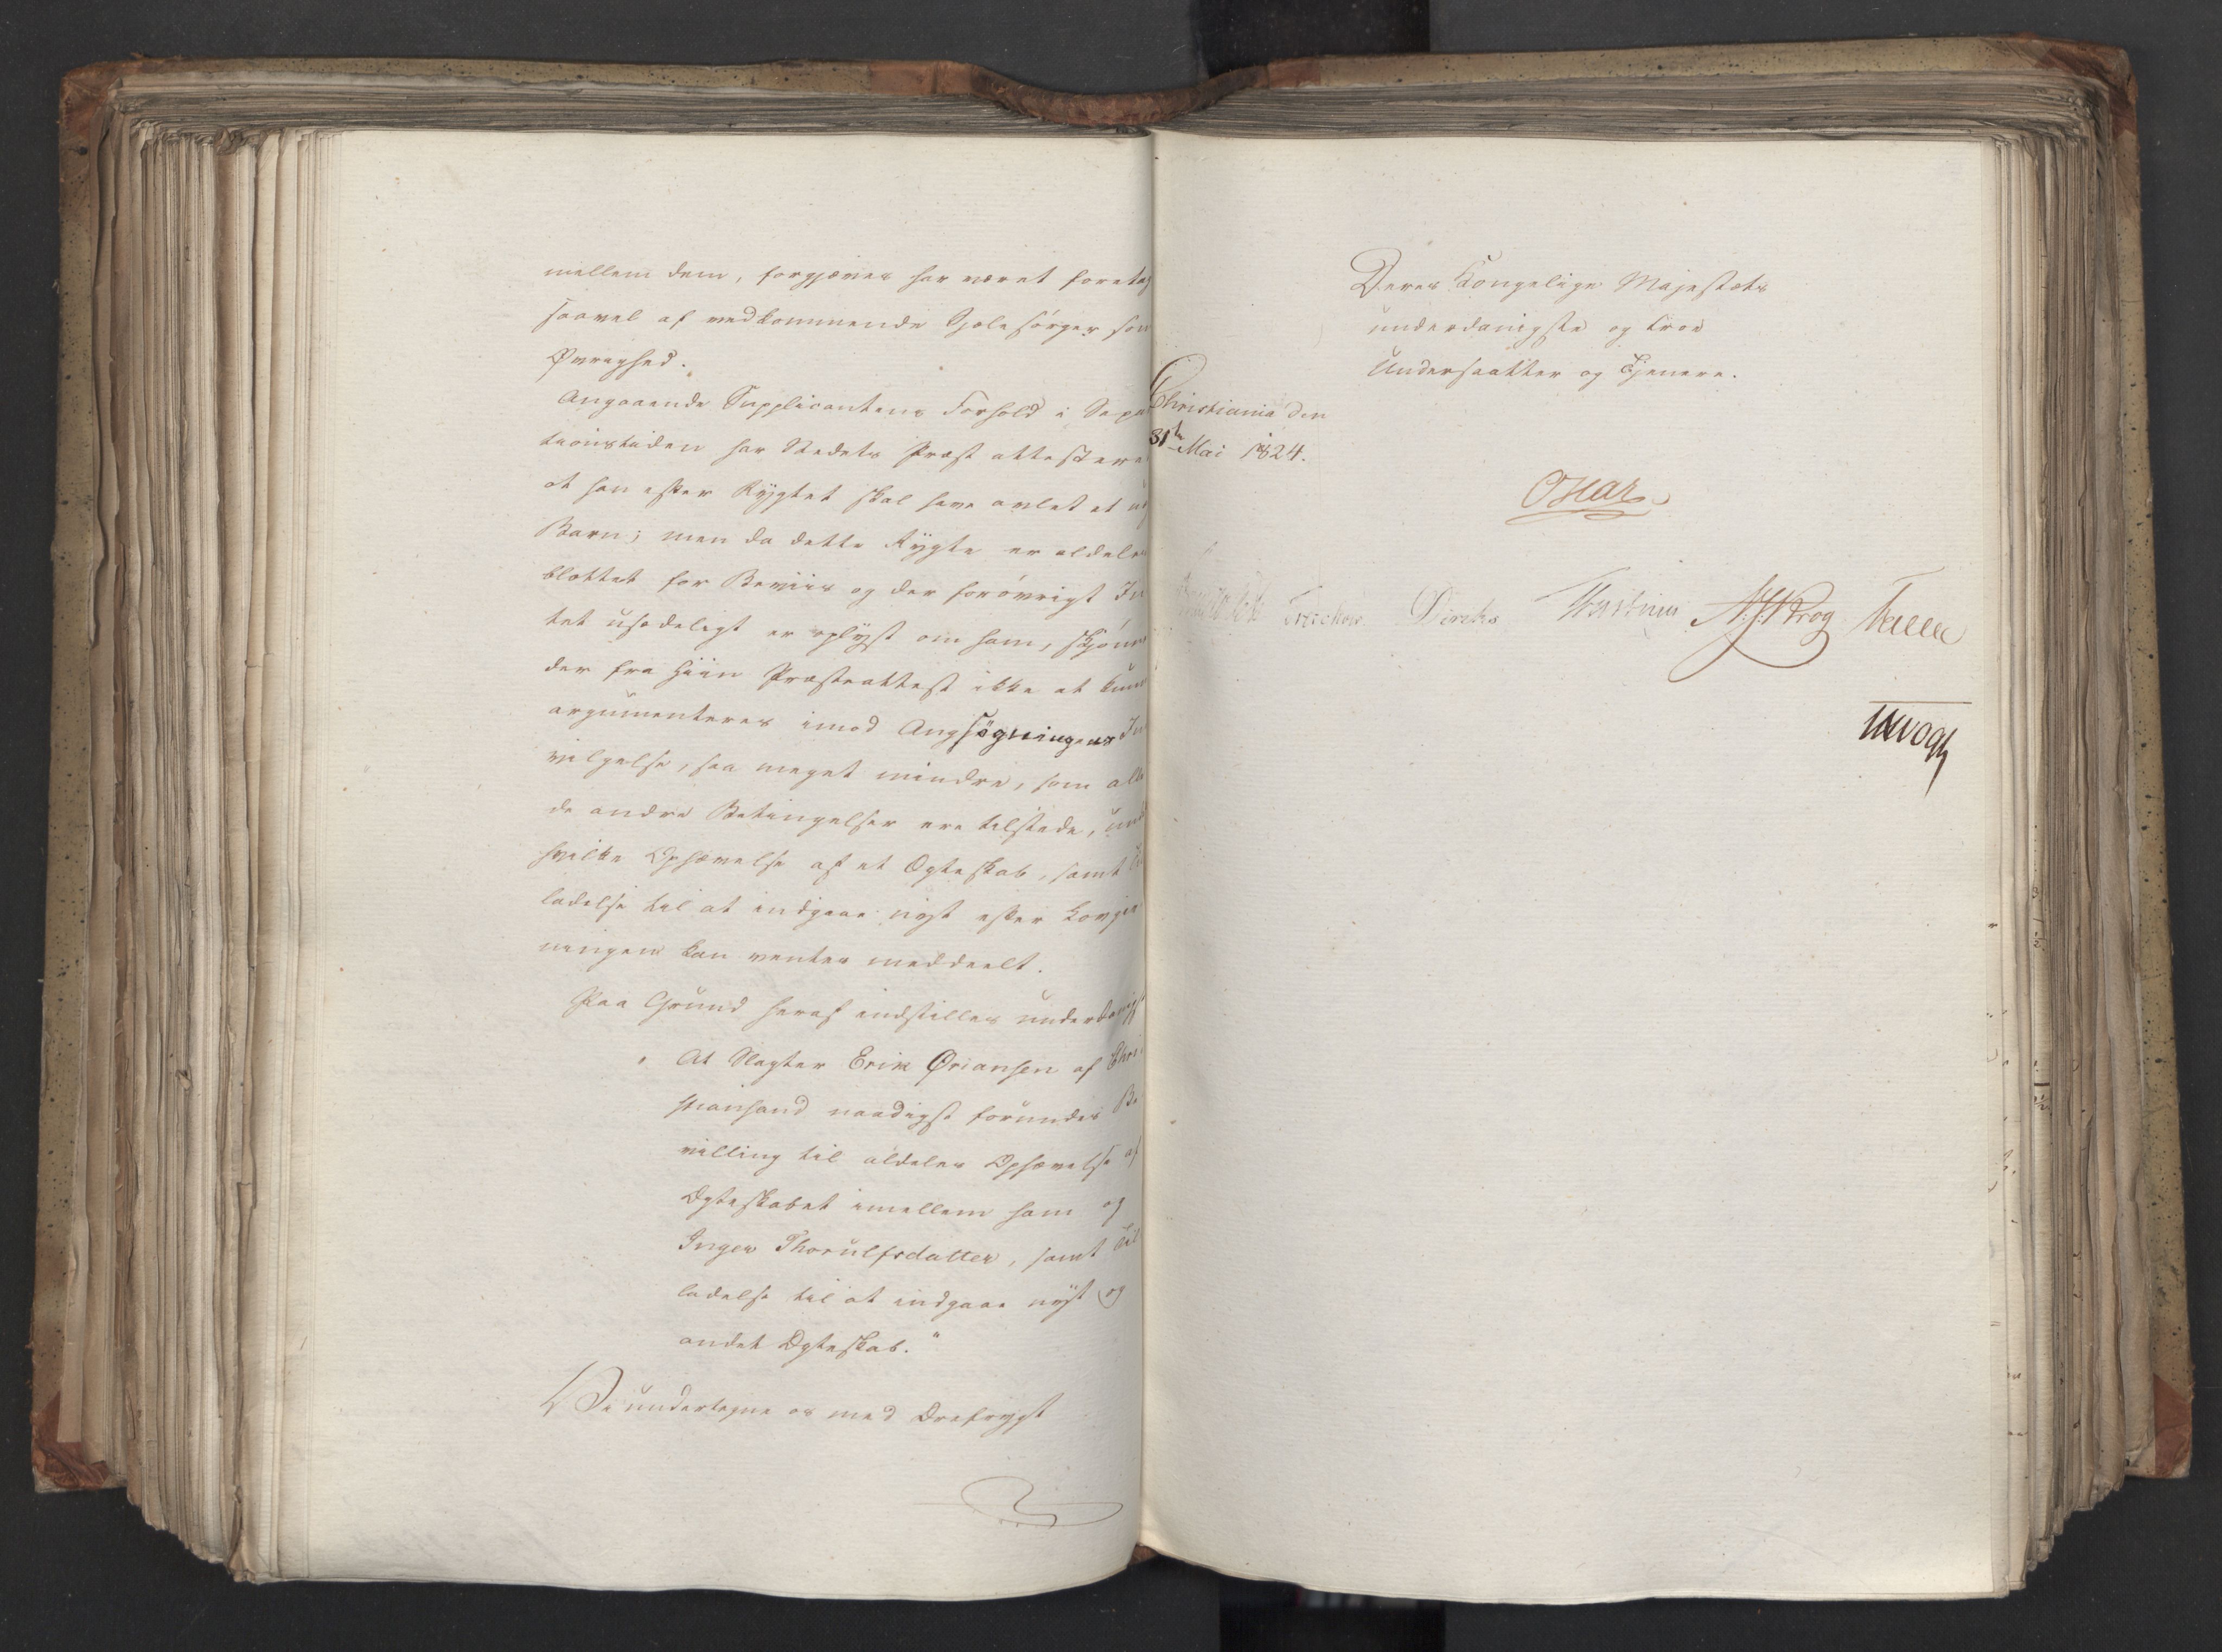 mellem dem, forgjæves har været foretag
saavel af vedkommende Sjælesørger som
Øvrighed.
Angaaende Supplicantens Forhold i Sepa
tionstiden har Stedets Præst attestere
at han efter Rygtet skal have avlet et
Barn; men da dette Rygte er aldeles
blottet for Beviis og der forøvrigt In
tet usædeligt er oplyst om ham, skjønn
der fra hiin Præsteattest ikke at kun
argumenteres imod Ansøgningens In
vilgelse, saa meget mindre, som alle
de andre Betingelser ere tilstede, und
hvilke Ophævelse af et Ægteskab, samt Til
ladelse til at indgaae nyt efter Lovgiv
ningen kan ventes meddeelt.
Paa Grund heraf indstilles underdanigst
" At Slagter Erik Øriansen af Chri
stiansand naadigst forundes Be
villing til aldeles Ophævelse af
Ægteskabet imellem ham og
Inger Thorulfsdatter, samt Til
ladelse til at indgaae nyt og
andet Ægteskab."
Vi undertegne os med Ærefrygt
Deres Kongelige Majestæts
underdanigste og troe
Undersaatter og Tjenere.
Christiania den
31te Mai 1824.
Oscar
Treschow Diriks Krog
Vogt